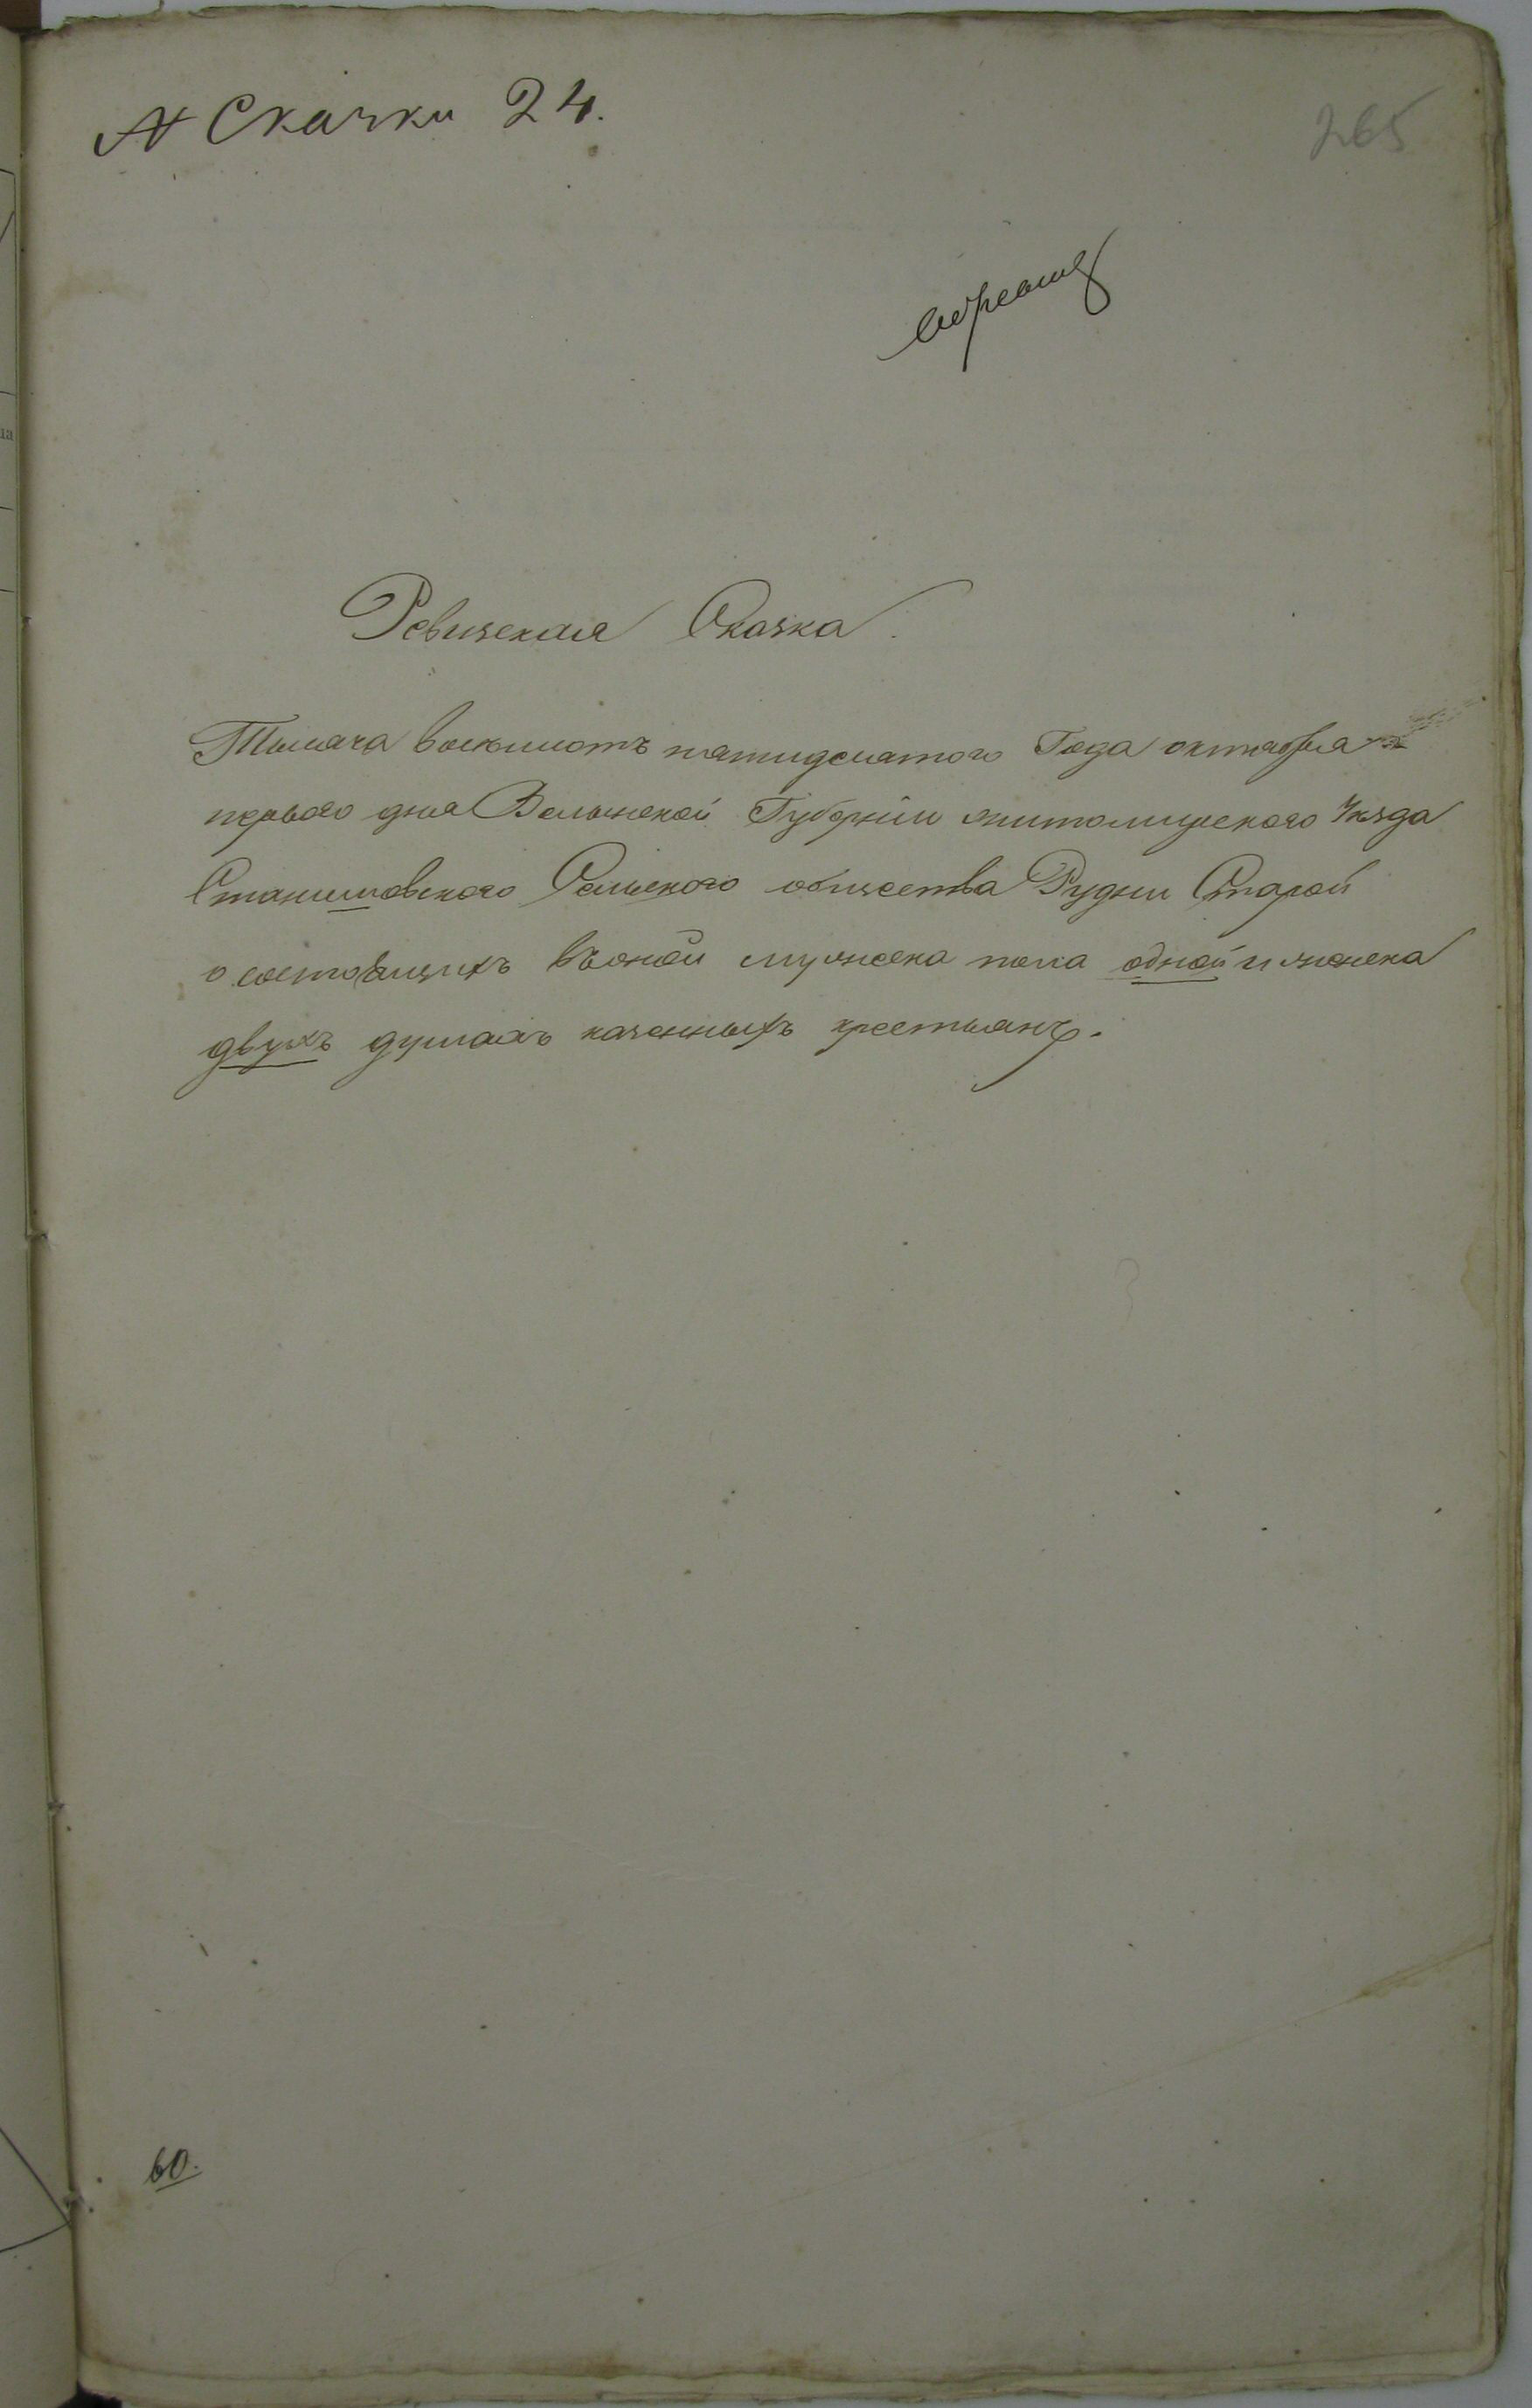 № Сказки 24.
265
Ревизская Сказка.
Тысяча восемьсотъ пятидесятого Года октября
первого дня Волынской Губерніи житомирского Уѣзда
Станишовского Сельского общества Рудни Старой
о состоящихъ въ оной мужеска пола одной и женска
двухъ душахъ казенныхъ крестьянъ.
60.